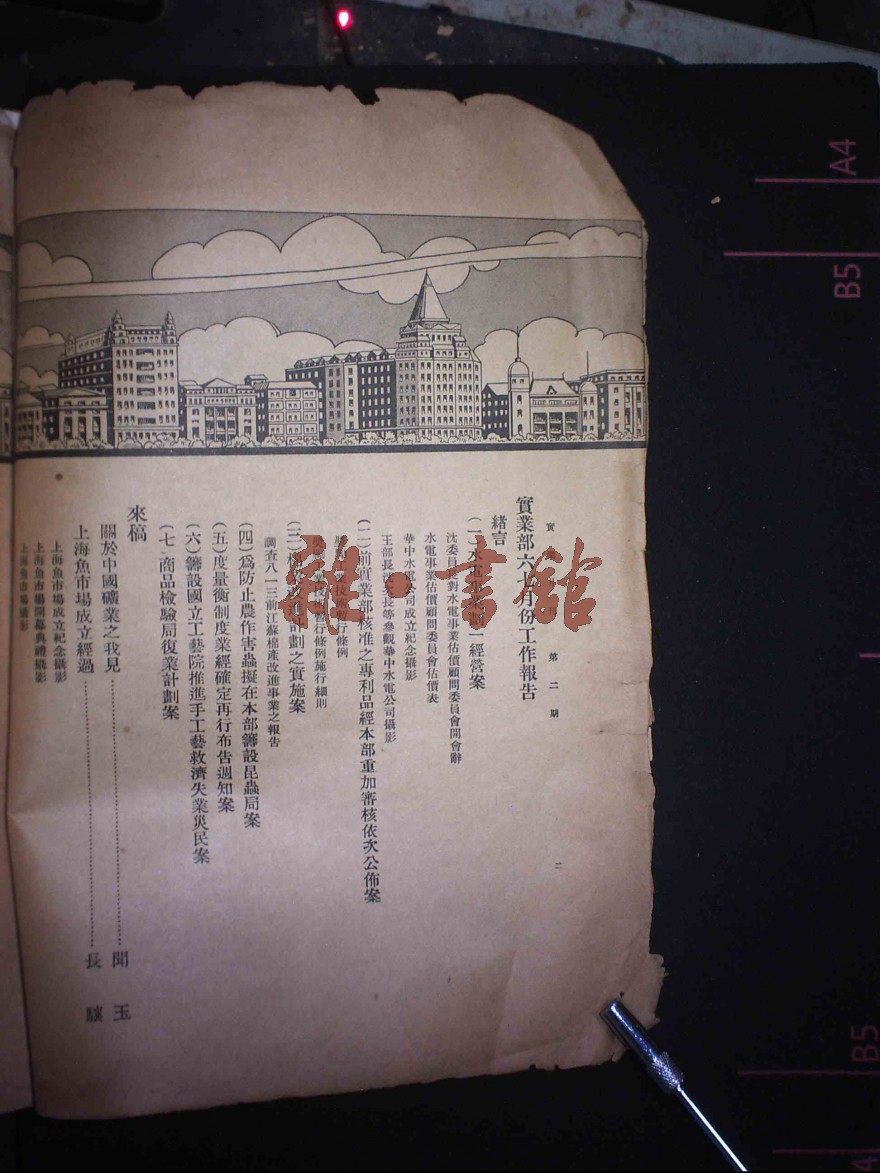 實 月 刊 第 二 期
二
實業部六七月份工作報告
緒言
(一)水電事業劃一經營案
沈委員長對水電事業估價顧問委員會開會辭
水電事業估價顧問委員會估價表
華中水電公司成立紀念攝影
王部長沈 長等參觀華中水電公司攝影
(二)前實業部核准之專利品經本部重加審核依次公佈案
技術暫行條例
技術暫行條例施行細則
(三) 計劃之實施案
調查八一三前江蘇棉產改進事業之報告
(四)爲防止農作害蟲擬在本部籌設昆蟲局案
(五)度量衡制度業經確定再行布告週知案
(六)籌設國立工藝院推進手工藝救濟失業災民案
(七)商品檢驗局復業計劃案
來稿
關於中國礦業之我見………聞 玉
上海魚市場成立經過………長 驥
上海魚市場成立紀念攝影
上海魚市場開幕典禮攝影
上海魚市場攝影
雜·書館
A4
B5
B5